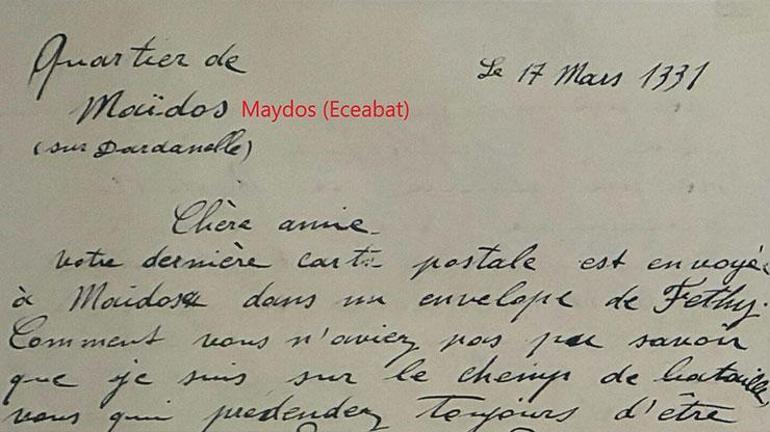 Quartier de
Maïdos Maydos (Eceabat)
(sur Dardanelle)
Le 17 Mars 1331
Chère amie
votre dernière carte postale est envoyée
à Maidos dans un envelope de Fethy.
Comment vous n'aviez pas pu savoir
que je suis sur le chemp de bataille,
vous qui prédendez toujours d'être